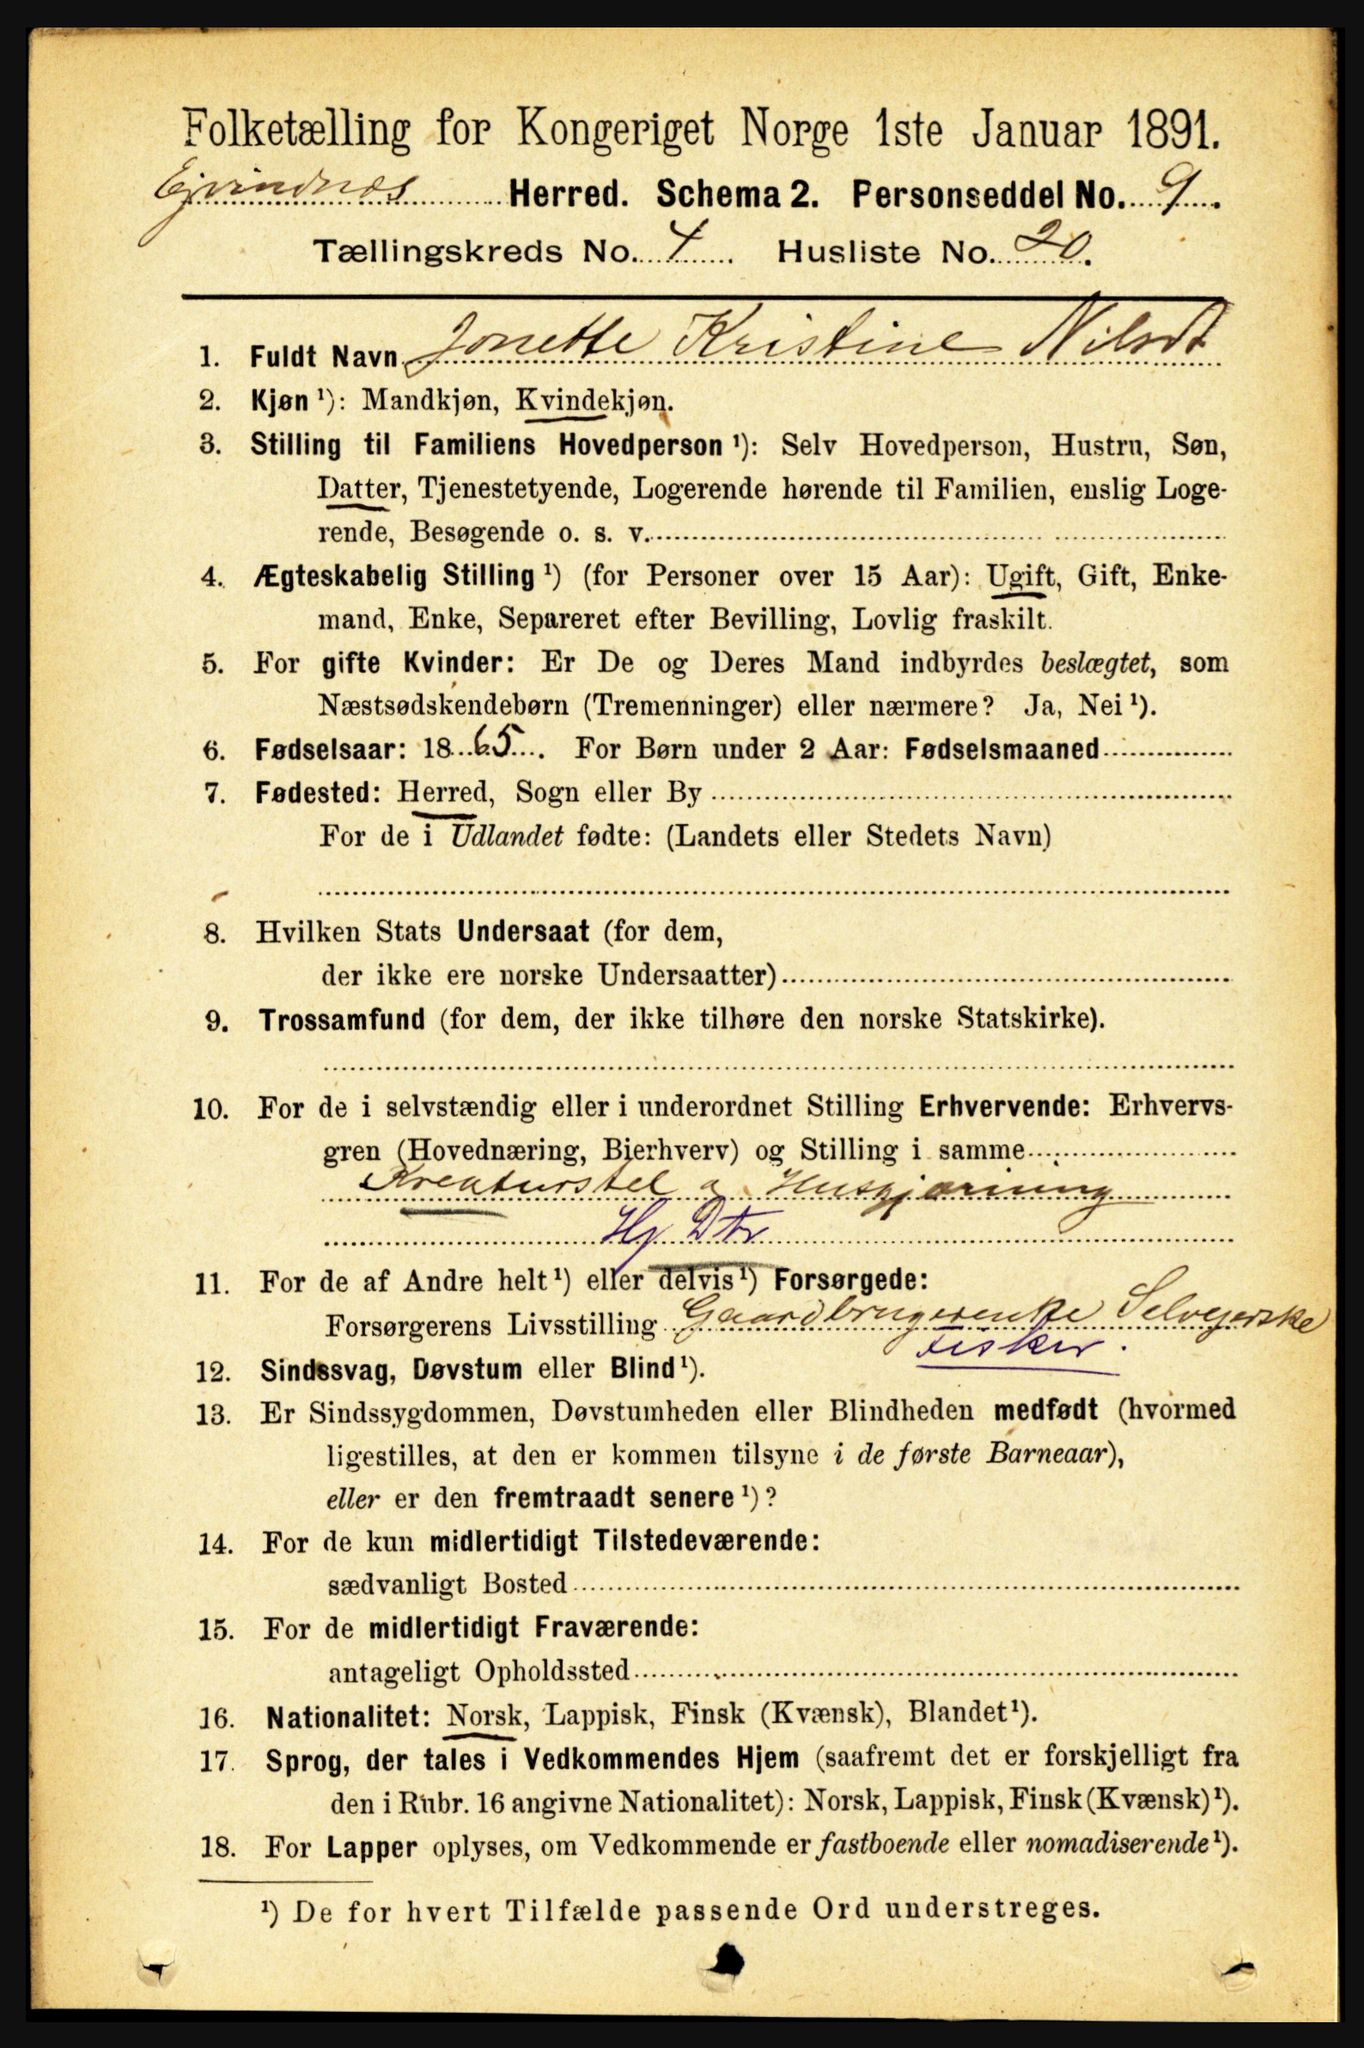 Folketælling for Kongeriget Norge 1ste Januar 1891.
Ejvindnæs Herred. Schema 2. Personseddel No. 9.
Tællingskreds No. 4 Husliste No. 20.
1. Fuldt Navn Jonette Kristine Nilsdt
2. Kjøn ¹): Mandkjøn, Kvindekjøn.
3. Stilling til Familiens Hovedperson ¹): Selv Hovedperson, Hustru, Søn,
Datter, Tjenestetyende, Logerende hørende til Familien, enslig Loge-
rende, Besøgende o. s. v.
4. Ægteskabelig Stilling ¹) (for Personer over 15 Aar): Ugift, Gift, Enke-
mand, Enke, Separeret efter Bevilling, Lovlig fraskilt.
5. For gifte Kvinder: Er De og Deres Mand indbyrdes beslægtet, som
Næstsødskendebørn (Tremenninger) eller nærmere? Ja, Nei ¹).
6. Fødselsaar: 1865. For Børn under 2 Aar: Fødselsmaaned
7. Fødested: Herred, Sogn eller By
For de i Udlandet fødte: (Landets eller Stedets Navn)
8. Hvilken Stats Undersaat (for dem,
der ikke ere norske Undersaatter)
9. Trossamfund (for dem, der ikke tilhøre den norske Statskirke).
10. For de i selvstændig eller i underordnet Stilling Erhvervende: Erhvervs-
gren (Hovednæring, Bierhverv) og Stilling i samme
Kreaturstel o Husgjærning
Hj. Dtr
11. For de af Andre helt ¹) eller delvis ¹) Forsørgede:
Forsørgerens Livsstilling Gaardbrugerenke Selvejerske
Fisker.
12. Sindssvag, Døvstum eller Blind ¹).
13. Er Sindssygdommen, Døvstumheden eller Blindheden medfødt (hvormed
ligestilles, at den er kommen tilsyne i de første Barneaar),
eller er den fremtraadt senere ¹)?
14. For de kun midlertidigt Tilstedeværende:
sædvanligt Bosted
15. For de midlertidigt Fraværende:
antageligt Opholdssted
16. Nationalitet: Norsk, Lappisk, Finsk (Kvænsk), Blandet ¹).
17. Sprog, der tales i Vedkommendes Hjem (saafremt det er forskjelligt fra
den i Rubr. 16 angivne Nationalitet): Norsk, Lappisk, Finsk (Kvænsk) ¹).
18. For Lapper oplyses, om Vedkommende er fastboende eller nomadiserende ¹).
¹) De for hvert Tilfælde passende Ord understreges.